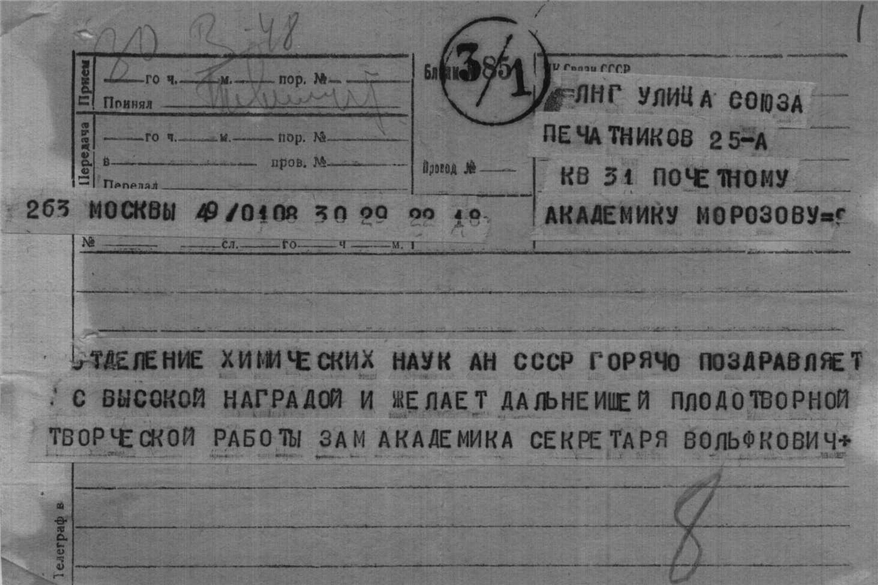 30 48
1
Прием
го ч. м. пор. №
Принял
Бланк
3/1
85
Связи СССР
ЛНГ УЛИЦА СОЮЗА
ПЕЧАТНИКОВ 25-А
КВ 31 ПОЧЕТНОМУ
АКАДЕМИКУ МОРОЗОВУ=
Передача
го ч. м. пор. №
в пров. №
Передал
Провод №
263 МОСКВЫ 49/0108 30 29 22 18
№ сл. го ч м.
ОТДЕЛЕНИЕ ХИМИЧЕСКИХ НАУК АН СССР ГОРЯЧО ПОЗДРАВЛЯЕТ
С ВЫСОКОЙ НАГРАДОЙ И ЖЕЛАЕТ ДАЛЬНЕИШЕЙ ПЛОДОТВОРНОЙ
ТВОРЧЕСКОЙ РАБОТЫ ЗАМ АКАДЕМИКА СЕКРЕТАРЯ ВОЛЬФКОВИЧ+
8
Телеграф в